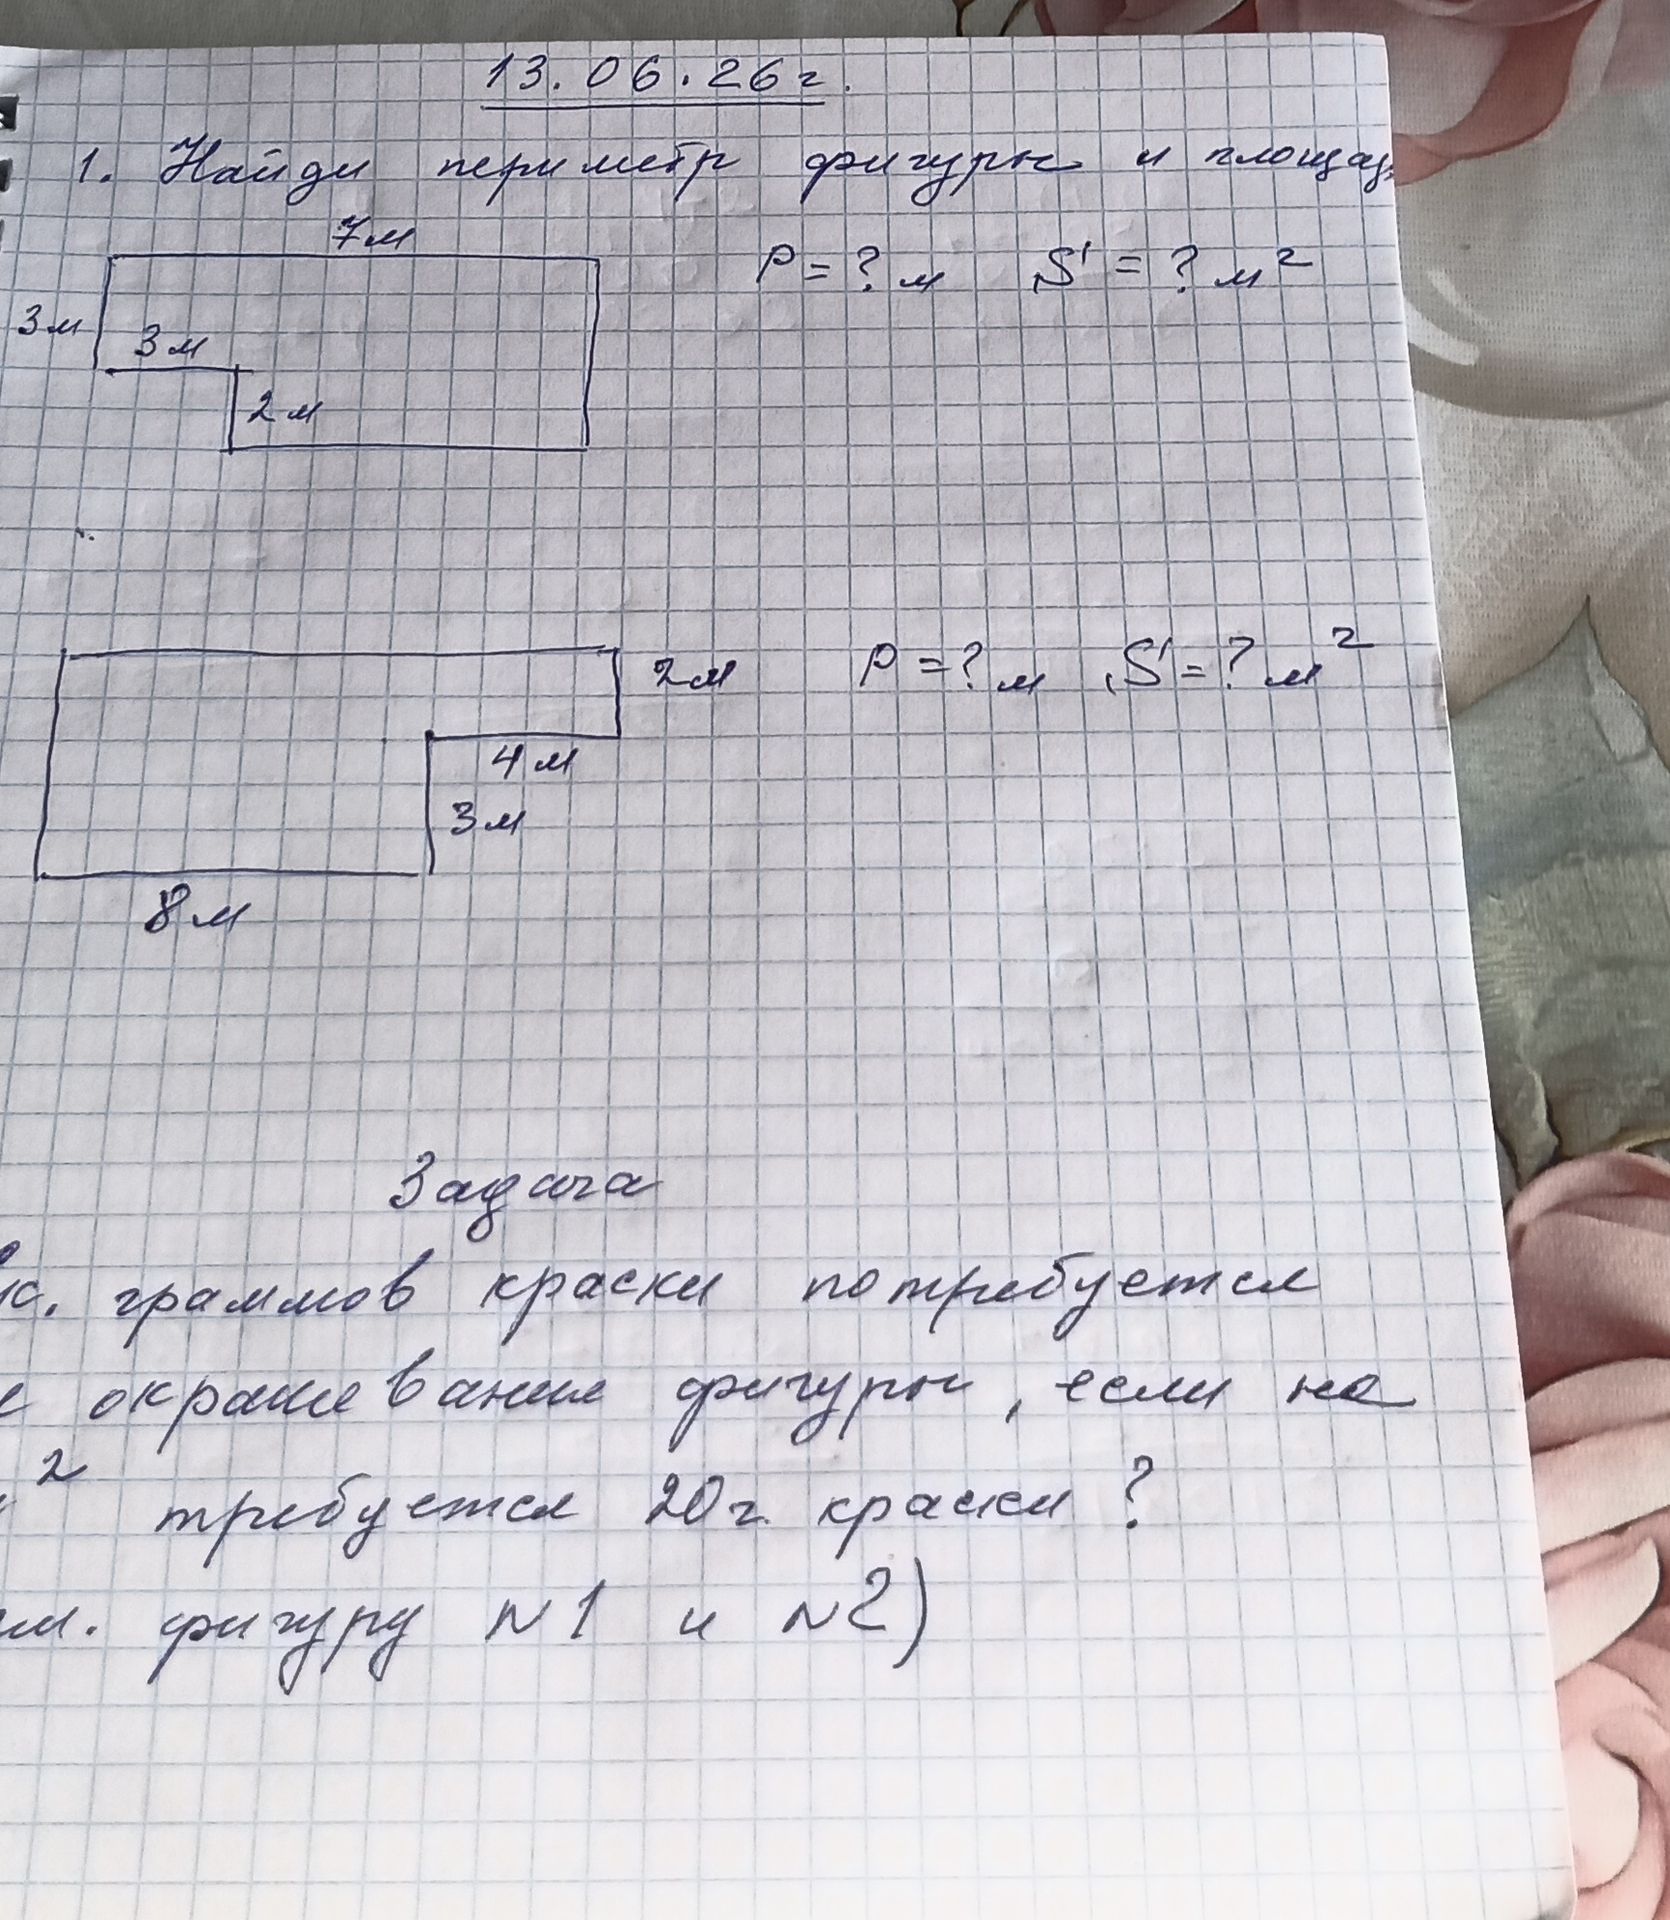 13.06.26г.
1. Найди периметр фигуры и площад
7м
P = ? м S = ? м²
3м
3м
2м
2м
P = ? м , S = ? м²
4м
3м
8м
Задача
граммов краски потребуется
окрашевания фигуры, если на
² требуется 20г. краски?
м. фигуру N1 и N2)